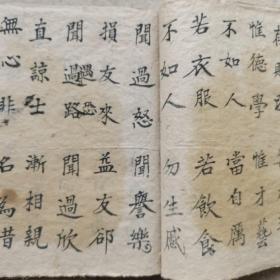 惟德學 惟才藝
不如人 當自勵
若衣服 若飲食
不如人 勿生慼
聞過怒 聞譽樂
損友來 益友卻
聞過路 聞過欣
直諒士 漸相親
無心非 名為昔